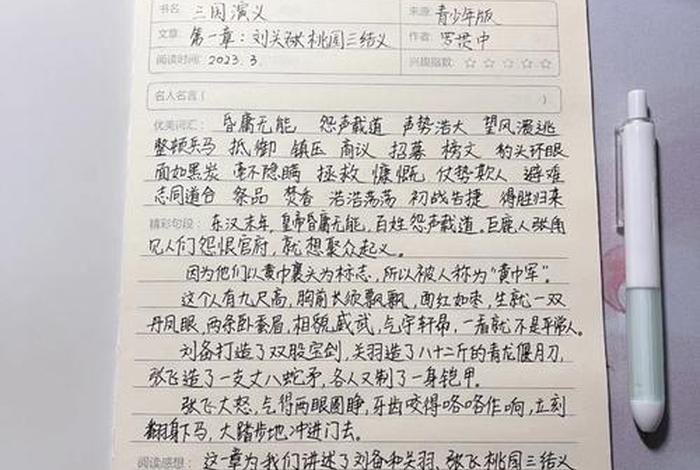 书名: 三国演义 来源: 青少年版
文章: 第一章:刘关张桃园三结义 作者: 罗贯中
阅读时间: 2023.3. 兴趣指数: ☆ ☆ ☆ ☆ ☆
名人名言( )
优美词汇: 昏庸无能 怨声载道 声势浩大 望风溃逃
整顿兵马 抵御 镇压 商议 招募 榜文 豹头环眼
面如黑炭 毫不隐瞒 拯救 慷慨 仗势欺人 避难
志同道合 祭品 焚香 浩浩荡荡 初战告捷 得胜归来
精彩句段: 东汉末年,皇帝昏庸无能,百姓怨声载道。巨鹿人张角
见人们怨恨官府,就想聚众起义。
因为他们以黄巾裹头为标志,所以被人称为“黄巾军”。
这个人有九尺高,胸前长须飘飘,面红如枣,生就一双
丹凤眼,两条卧蚕眉,相貌威武,气宇轩昂,一看就不是平常人。
刘备打造了双股宝剑,关羽造了八十二斤的青龙偃月刀,
张飞造了一支丈八蛇矛,各人又制了一身铠甲。
张飞大怒,气得两眼圆睁,牙齿咬得咯咯作响,立刻
翻身下马,大踏步地冲进门去。
阅读感想: 这一章为我们讲述了刘备和关羽、张飞桃园三结义